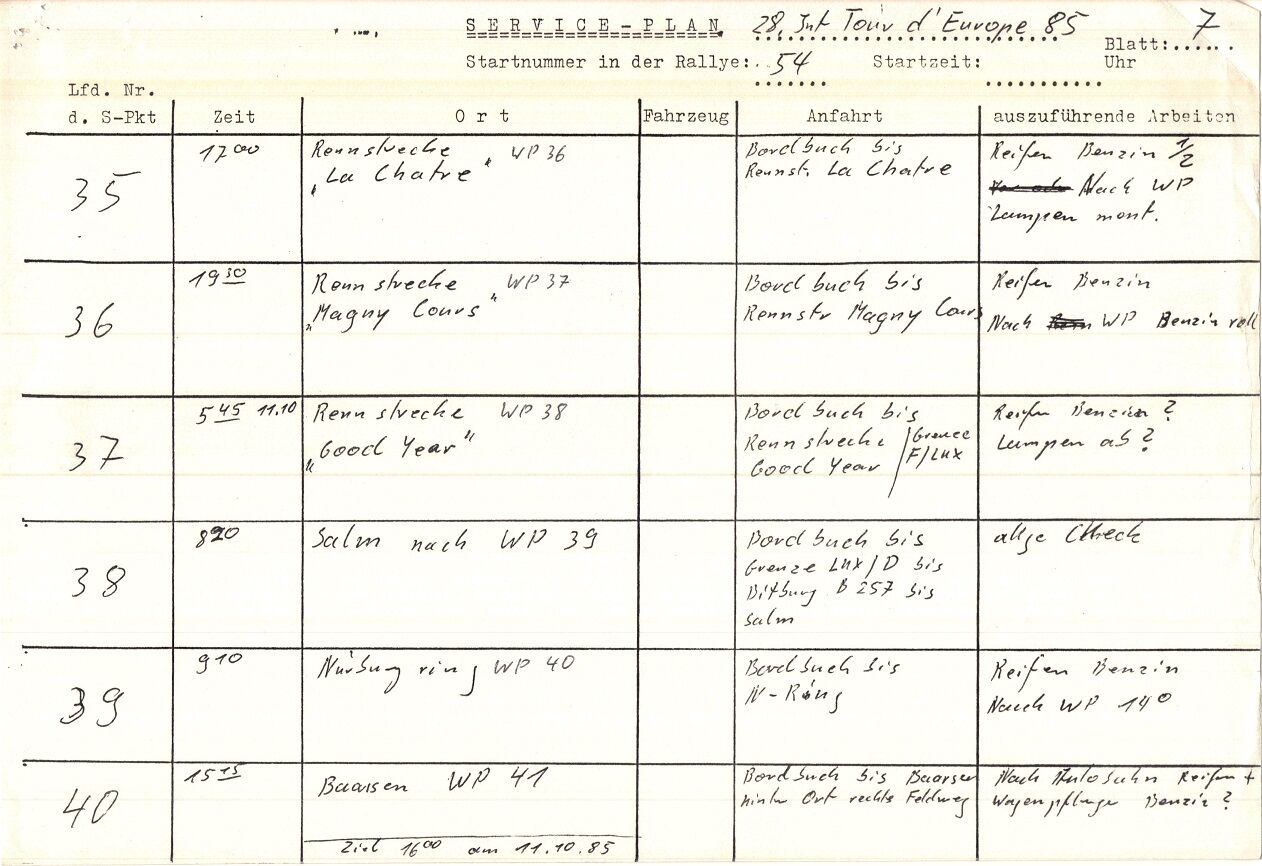 SERVICE-PLAN 28. Int Tour d'Europe 85
Blatt: 7
Startnummer in der Rallye: 54 Startzeit: Uhr
Lfd. Nr.
d. S-Pkt Zeit Ort Fahrzeug Anfahrt auszuführende Arbeiten
35
17 00
Rennstrecke WP 36
"La Chatre"
Bordbuch bis
Rennst. La Chatre
Reifen Benzin 1/2
Nach WP
Lampen mont.
36
19 30
Rennstrecke WP 37
"Magny Cours"
Bordbuch bis
Rennstr Magny Cours
Reifen Benzin
Nach WP Benzin voll
37
5 45 11.10
Rennstrecke WP 38
"Good Year"
Bordbuch bis
Rennstrecke / Grenze
Good Year / F/Lux
Reifen Benzin ?
Lampen ab ?
38
8 20
Salm nach WP 39
Bordbuch bis
Grenze Lux/D bis
Bitburg B 257 bis
Salm
allge Check
39
9 10
Nürburgring WP 40
Bordbuch bis
N-Ring
Reifen Benzin
Nach WP 140
40
15 15
Baarsen WP 41
Bordbuch bis Baarsen
hinter Ort rechts Feldweg
Nach Autobahn Reifen +
Wagenpflege Benzin ?
Ziel 16 00 am 11.10.85